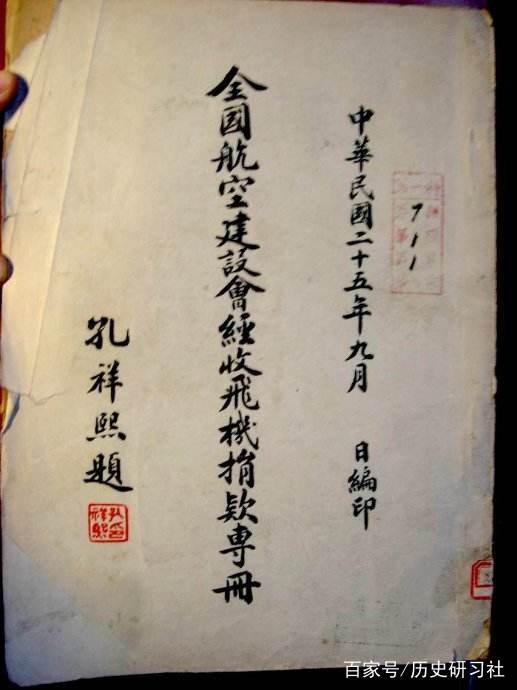 中華民國二十五年九月　日編印
全國航空建設會經收飛機捐款專冊
孔祥熙題
711
百家号/历史研习社